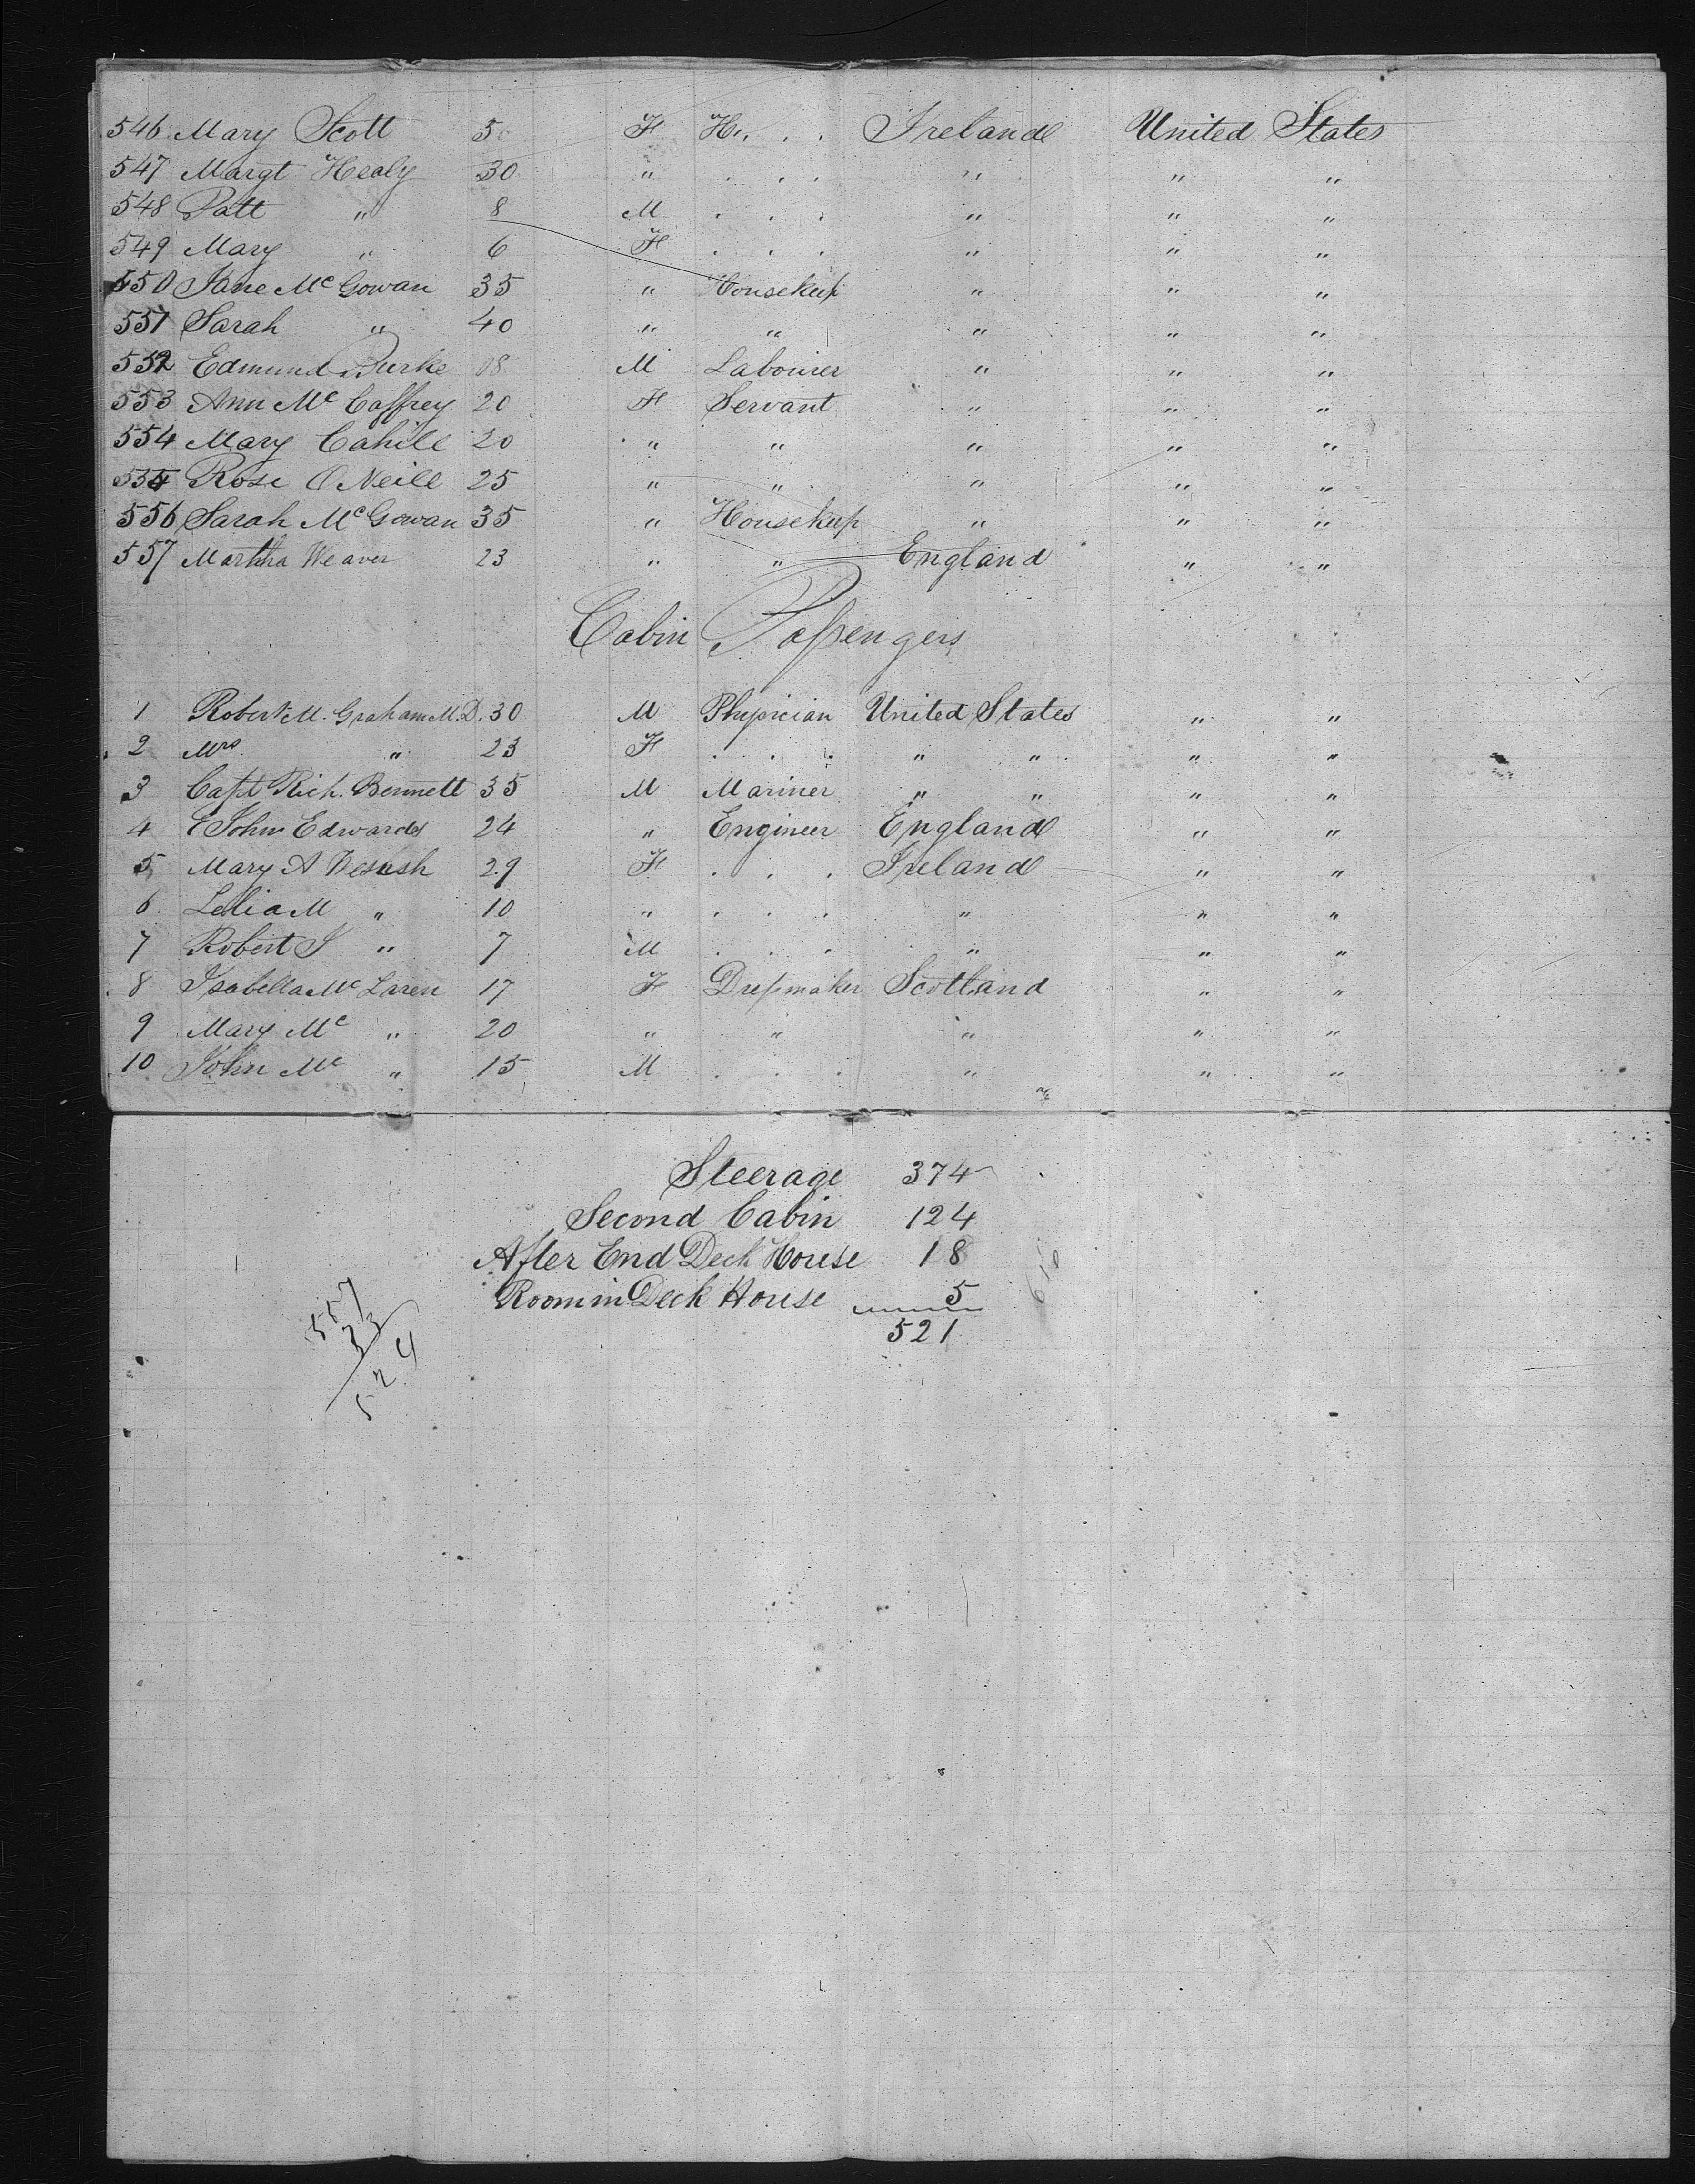 546 Mary Scott 5 F H. . . Ireland United States
547 Margt Healy 30 " . . . " " "
548 Patt " 8 M . . . " " "
549 Mary " 6 F . . . " " "
550 Jane Mc Gowan 35 " Housekeep " " "
551 Sarah " 40 " " " " "
552 Edmund Burke 08 M Labourer " " "
553 Ann Mc Caffrey 20 F Servant " " "
554 Mary Cahill 20 " " " " "
554 Rose O Neill 25 " " " " "
556 Sarah Mc Gowan 35 " Housekeep " " "
557 Martha Weaver 23 " " England " "
Cabin Passengers
1 Robert M. Graham M.D. 30 M Physician United States " "
2 Mrs " 23 F . . . " " " "
3 Capt Rich. Bennett 35 M Mariner " " " "
4 E John Edwards 24 " Engineer England " "
5 Mary A 29 F . . . Ireland " "
6 Lelia M " 10 " . . . " " "
7 Robert J " 7 M . . . " " "
8 Isabella Mc Laren 17 F Dressmaker Scotland " "
9 Mary Mc " 20 " " " " "
10 John Mc " 15 M . . . " " "
Steerage 374
Second Cabin 124
After End Deck House 18
Room in Deck House 5
521
557
33
524